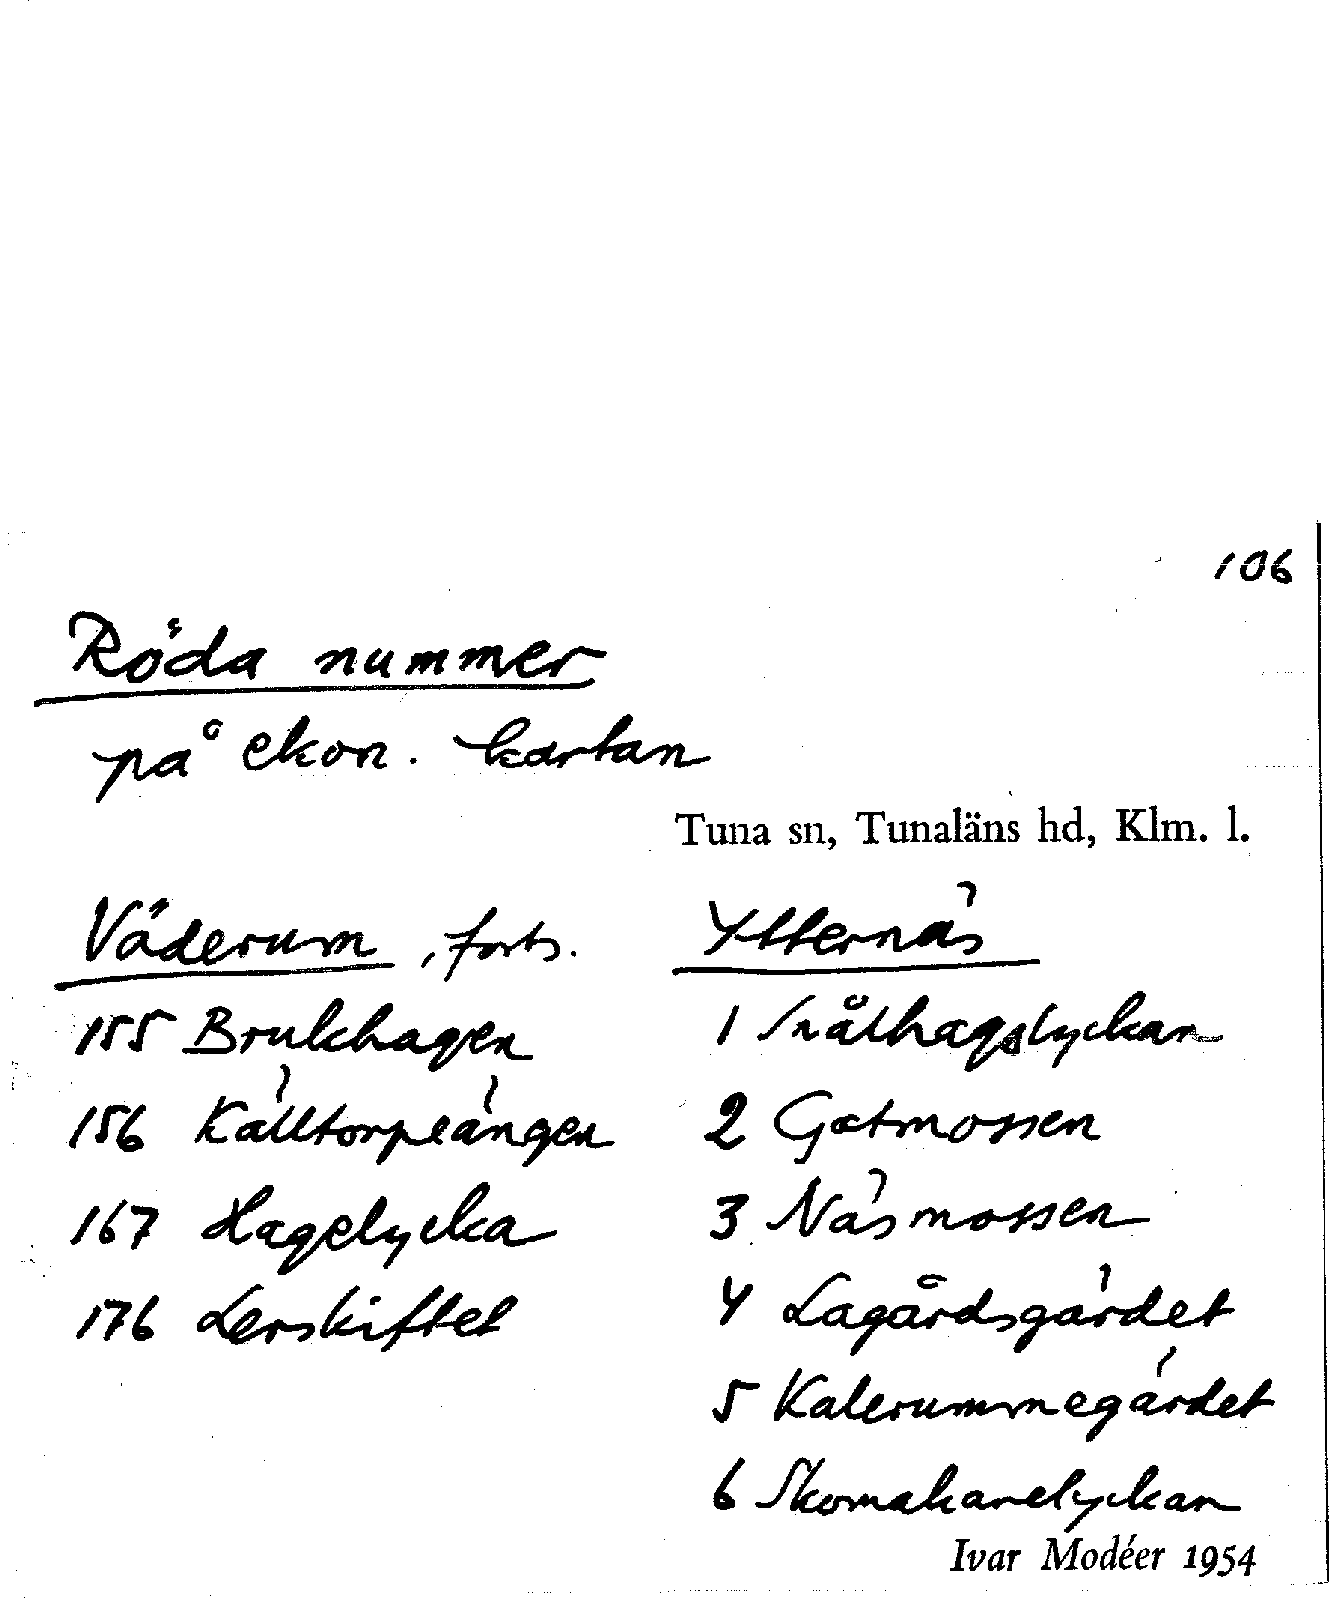 106
Röda nummer
på ekon. kartan
Tuna sn, Tunaläns hd, Klm. l.
Väderum, forts.
155 Brukhagen
156 Källtorpeängen
167 Hagelycka
176 Lerskiftet
Ytternäs
1 Snålhagslyckan
2 Getmossen
3 Näsmossen
4 Lagårdsgärdet
5 Kalerummegärdet
6 Skomakarelyckan
Ivar Modéer 1954